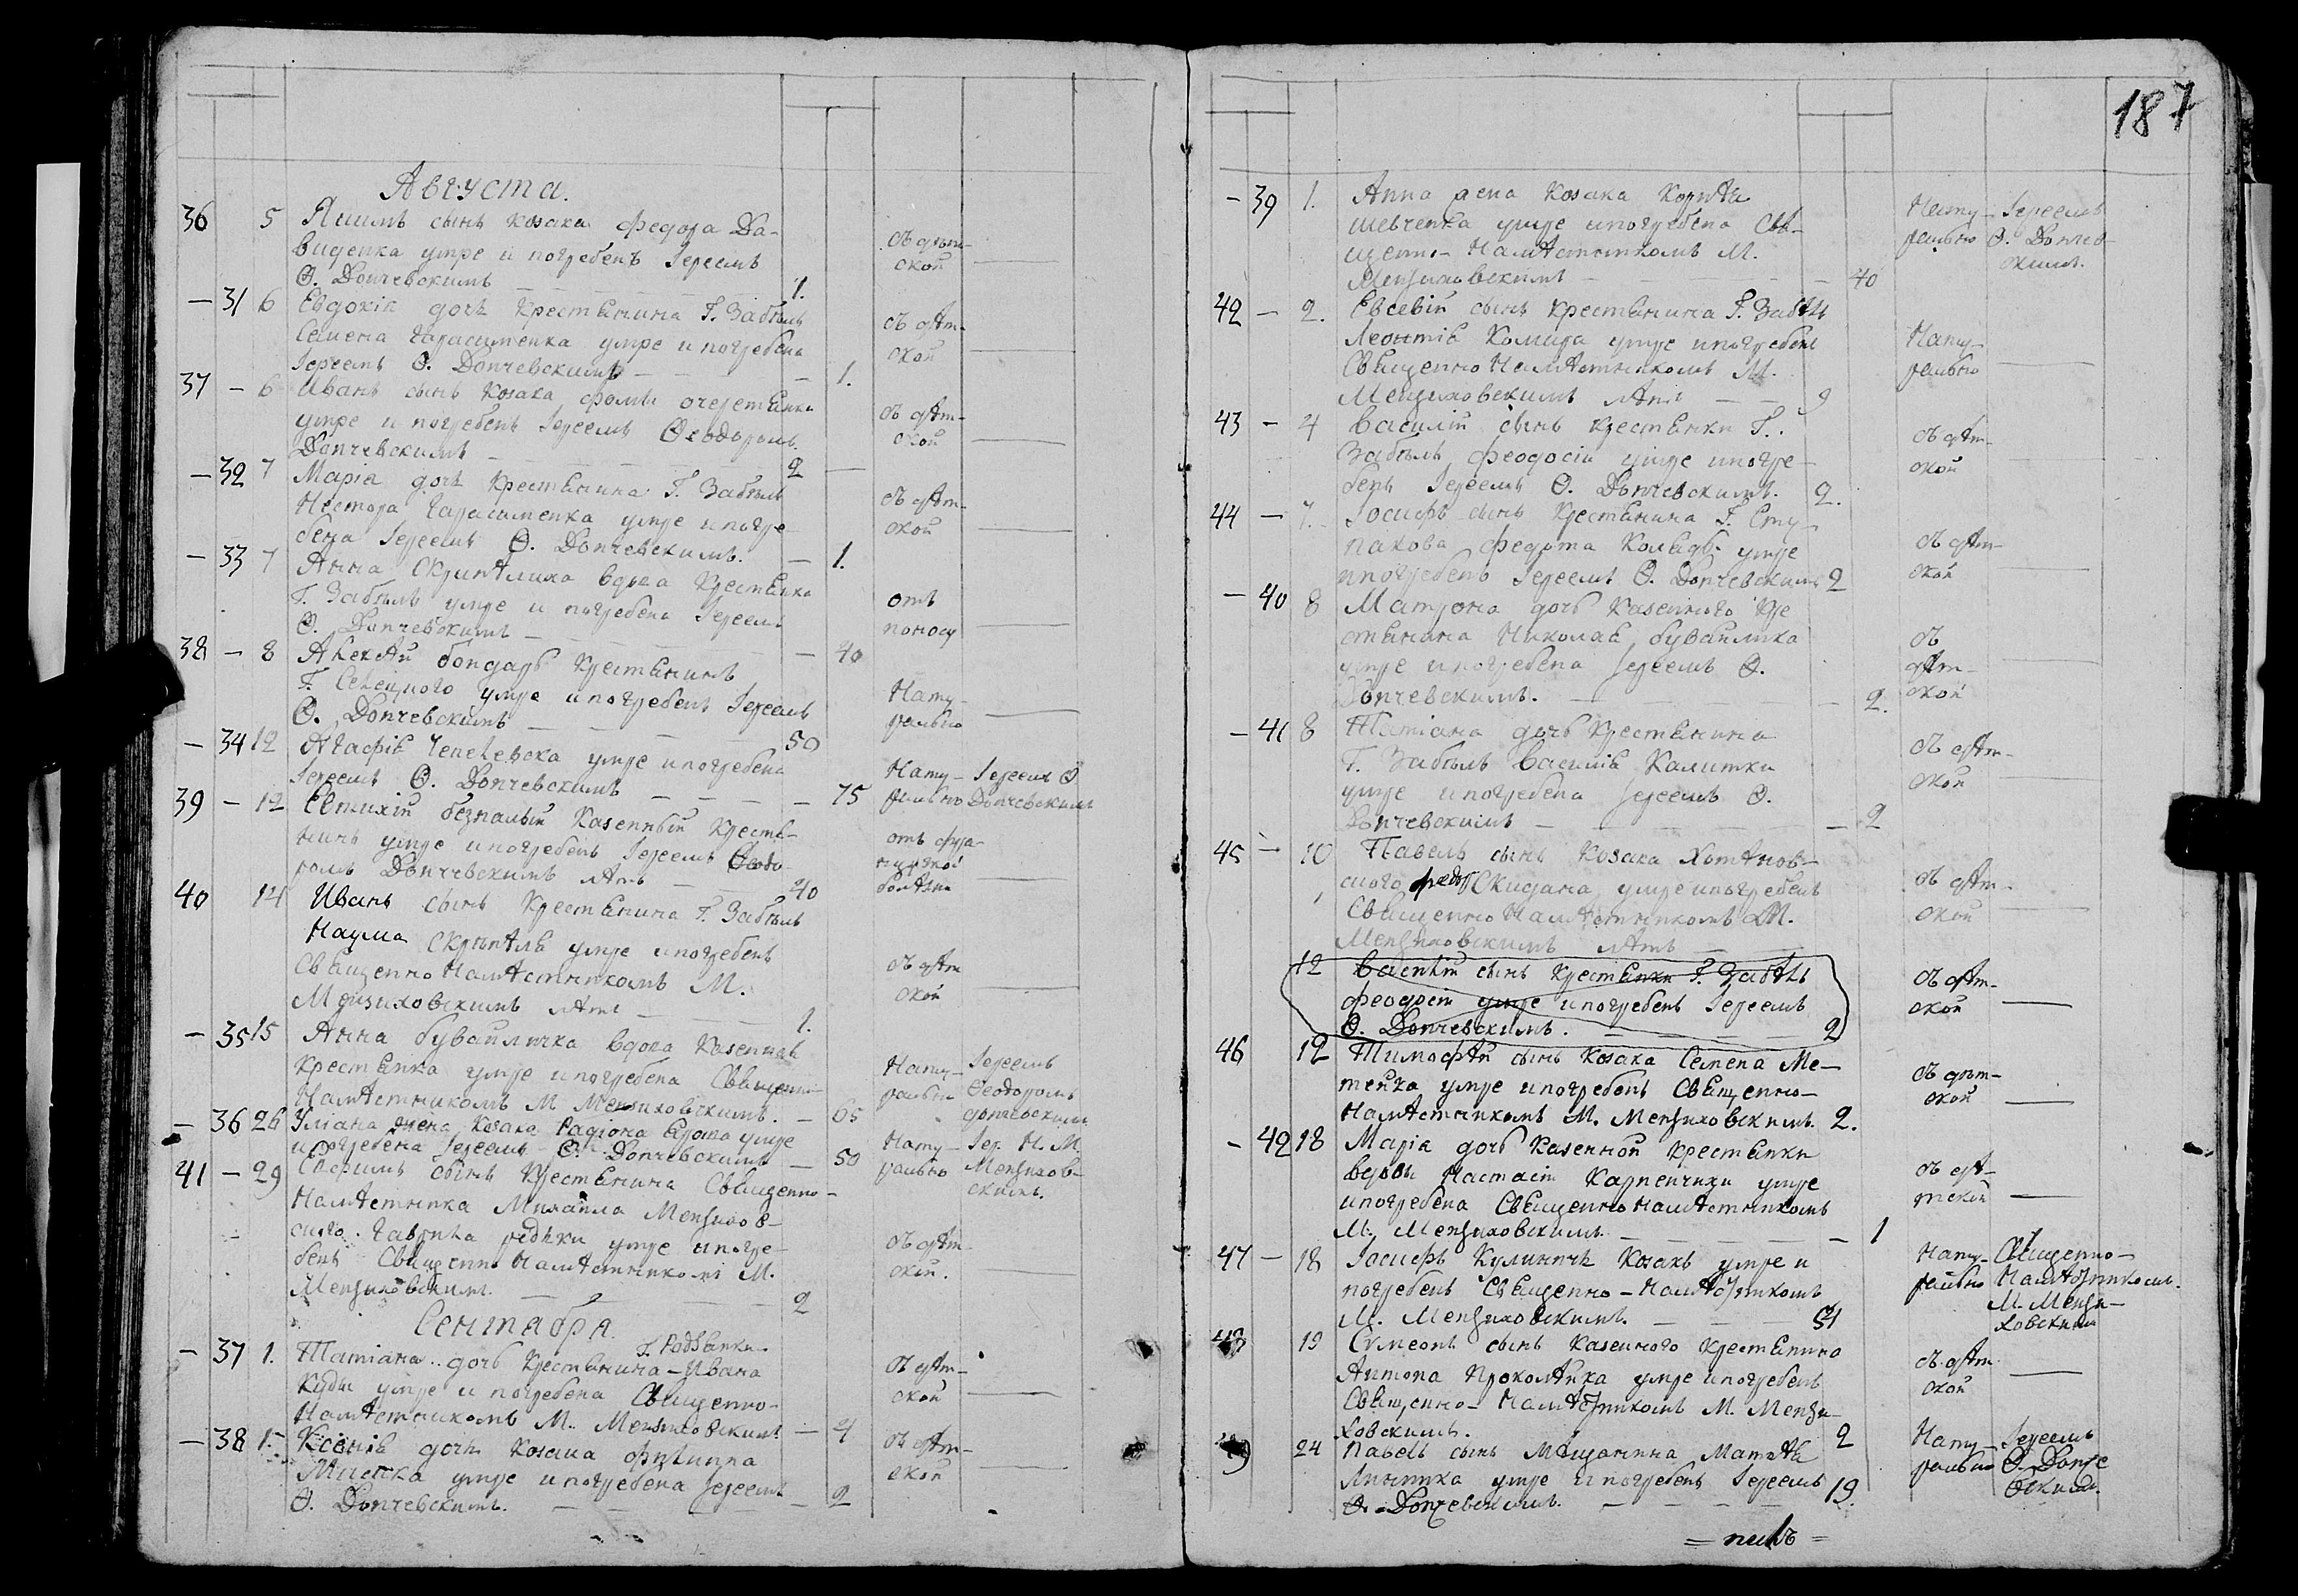 187
Августа.
36 5 Якимъ сынъ козака Федора Да-
виденка умре и погребенъ Іереемъ
Ѳ. Дончевскимъ 1. съ дѣт-
ской
— 31 6 Евдокія дочь крестянина Г. Забѣлы
Семена Гарасименка умре и погребена
Іереемъ Ѳ. Дончевскимъ — 1. съ дѣт-
ской
37 — 6 Иванъ сынъ козака Фомы Очеретянки
умре и погребенъ Іереемъ Ѳеодоромъ
Дончевскимъ 2 — съ дѣт-
ской
— 32 7 Марія дочь крестянина Г. Забѣлы
Нестора Гарасименка умре и погре-
бена Іереемъ Ѳ. Дончевскимъ. — 1. съ дѣт-
ской
— 33 7 Анна вдова крестянка
Г. Забѣлы умре и погребена Іереем
Ѳ. Дончевскимъ — 40 отъ
поносу
38 — 8 Алексѣй бондарь крестянинъ
Г. умре и погребенъ Іереемъ
Ѳ. Дончевскимъ 50 Нату-
рально
— 34 12 Агафія умре и погребена
Іереемъ Ѳ. Дончевскимъ — 75 Нату- Іереемъ Ѳ
рально Дончевскимъ
39 — 12 Евтихій безпалый казенный крестя-
нинъ умре и погребенъ Іереемъ Ѳеодо-
ромъ Дончевскимъ лѣтъ 40 отъ
болѣзни
40 14 Иванъ сынъ крестянина Г. Забѣлы
Наума Скрипаля умре и погребенъ
Священно Намѣстникомъ М.
Мензиховскимъ лѣтъ 1. съ дѣт
ской
— 35 15 Анна бувайличка вдова казенная
крестянка умре и погребена Священно
Намѣстникомъ М Мензиховскимъ. — 65 Нату- Іереемъ
рально Ѳеодоромъ
— 36 26 Уліана жена козака Радіона умре
и погребена Іереемъ Ѳ. Дончевскимъ — 50 Нату- Іер. Н. М
рально Мензихов-
скимъ.
41 — 29 сынъ крестянина Священно-
Намѣстника Михаила Мензихов-
ского Гаврила рѣдьки умре и погре-
бенъ Священно Намѣстникомъ М.
Мензиховскимъ. 2 съ дѣт-
ской.
Сентабря.
— 37 1. Татіана дочь крестянина Ивана
Куды умре и погребена Священно-
Намѣстникомъ М. Мензиховскимъ — 4 съ дѣт-
ской
— 38 1. Ксенія дочь козака Филиппа
умре и погребена Іереемъ
Ѳ. Дончевскимъ. — 2 съ дѣт-
ской
— 39 1. Анна жена козака
Шевченка умре и погребена Свя-
щенно- Намѣстникомъ М.
Мензиховскимъ — 40 Нату- Іереемъ
рально Ѳ. Дончев-
скимъ.
42 — 2. Евсевій сынъ крестянина Г. Забѣлы
Леонтія Комира умре и погребенъ
Священно Намѣстникомъ М.
Мензиховскимъ лѣтъ — 9 Нату-
рально
43 — 4 Василій сынъ крестянки Г.
Забѣлы Феодосіи умре и погре-
бенъ Іереемъ Ѳ. Дончевскимъ. 2. съ дѣт-
ской
44 — 7. Іосифъ сынъ крестянина Г. Сту-
пахова Федота Коляды умре
и погребенъ Іереемъ Ѳ. Дончевскимъ 2 съ дѣт-
ской
— 40 8 Матрона дочь казенного кре
стянина Николая бувайлика
умре и погребена Іереемъ Ѳ.
Дончевскимъ. — 2. съ
дѣт-
ской
— 41 8 Татіана дочь крестянина
Г. Забѣлы Василія Калитки
умре и погребена Іереемъ Ѳ.
Дончевскимъ — 2 съ дѣт-
ской
45 — 10 Павелъ сынъ козака Хотянов-
ского Скидана умре и погребенъ
Священно Намѣстникомъ М.
Мензиховскимъ лѣтъ съ дѣт-
ской
12 Василій сынъ крестянки Г. Забѣлы
Феодосіи умре и погребенъ Іереемъ
Ѳ. Дончевскимъ. 2 съ дѣт-
ской
46 12 Тимофѣй сынъ козака Семена Ме-
тейка умре и погребенъ Священно-
Намѣстникомъ М. Мензиховскимъ. 2. съ дѣт-
ской
— 42 18 Марія дочь казенной крестянки
вдовы Настасіи Карпенчихи умре
и погребена Священно Намѣстникомъ
М. Мензиховскимъ — 1 съ дѣ-
тской
47 — 18 Іосифъ Кулиничъ козакъ умре и
погребенъ Священно-Намѣстникомъ
М. Мензиховскимъ. Нату- Священно-
рально Намѣстникомъ
М. Мензи-
ховскимъ
48 19 Сумеонъ сынъ казенного крестянина
Антона Прокопѣнка умре и погребенъ
Священно- Намѣстникомъ М. Мензи-
ховскимъ. 2 съ дѣт
ской
24 Павелъ сынъ Мѣщанина Матвѣя
умре и погребенъ Іереемъ
Ѳ. Дончевскимъ. 19. Нату- Іереемъ
рально Ѳ. Донче
вскимъ.